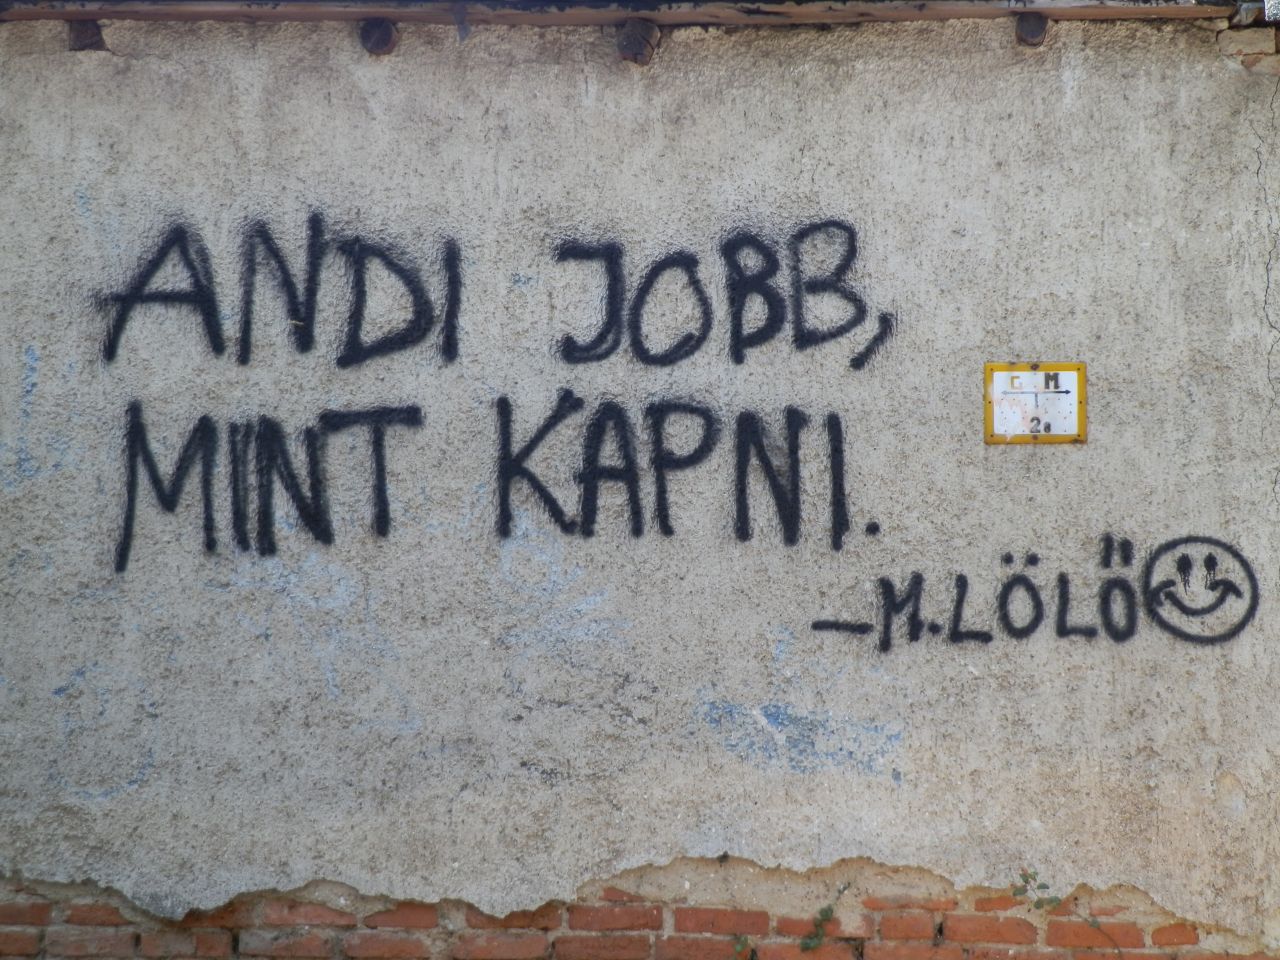 ANDI JOBB,
MINT KAPNI.
G M
2
-M.LÖLÖ